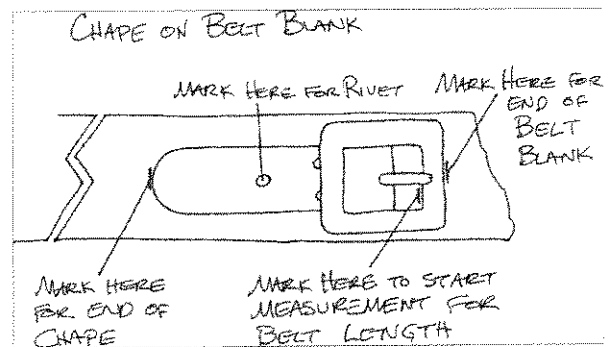 CHAPE ON BELT BLANK
MARK HERE FOR RIVET
MARK HERE FOR
END OF
BELT
BLANK
MARK HERE
FOR END OF
CHAPE
MARK HERE TO START
MEASUREMENT FOR
BELT LENGTH